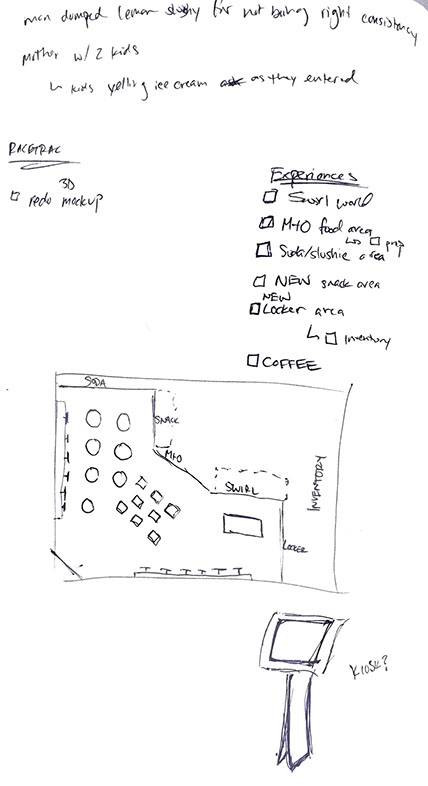 man dumped lemon slushy for not being right consistency
mother w/ 2 kids
↳ kids yelling ice cream as they entered
RACETRAC
3D
redo mockup
Experiences
Swirl world
MTO food area
↳ prep
Soda/slushie area
NEW snack area
NEW
Locker area
↳ Inventory
COFFEE
SODA
SNACK
MTO
SWIRL
INVENTORY
LOCKER
KIOSK?